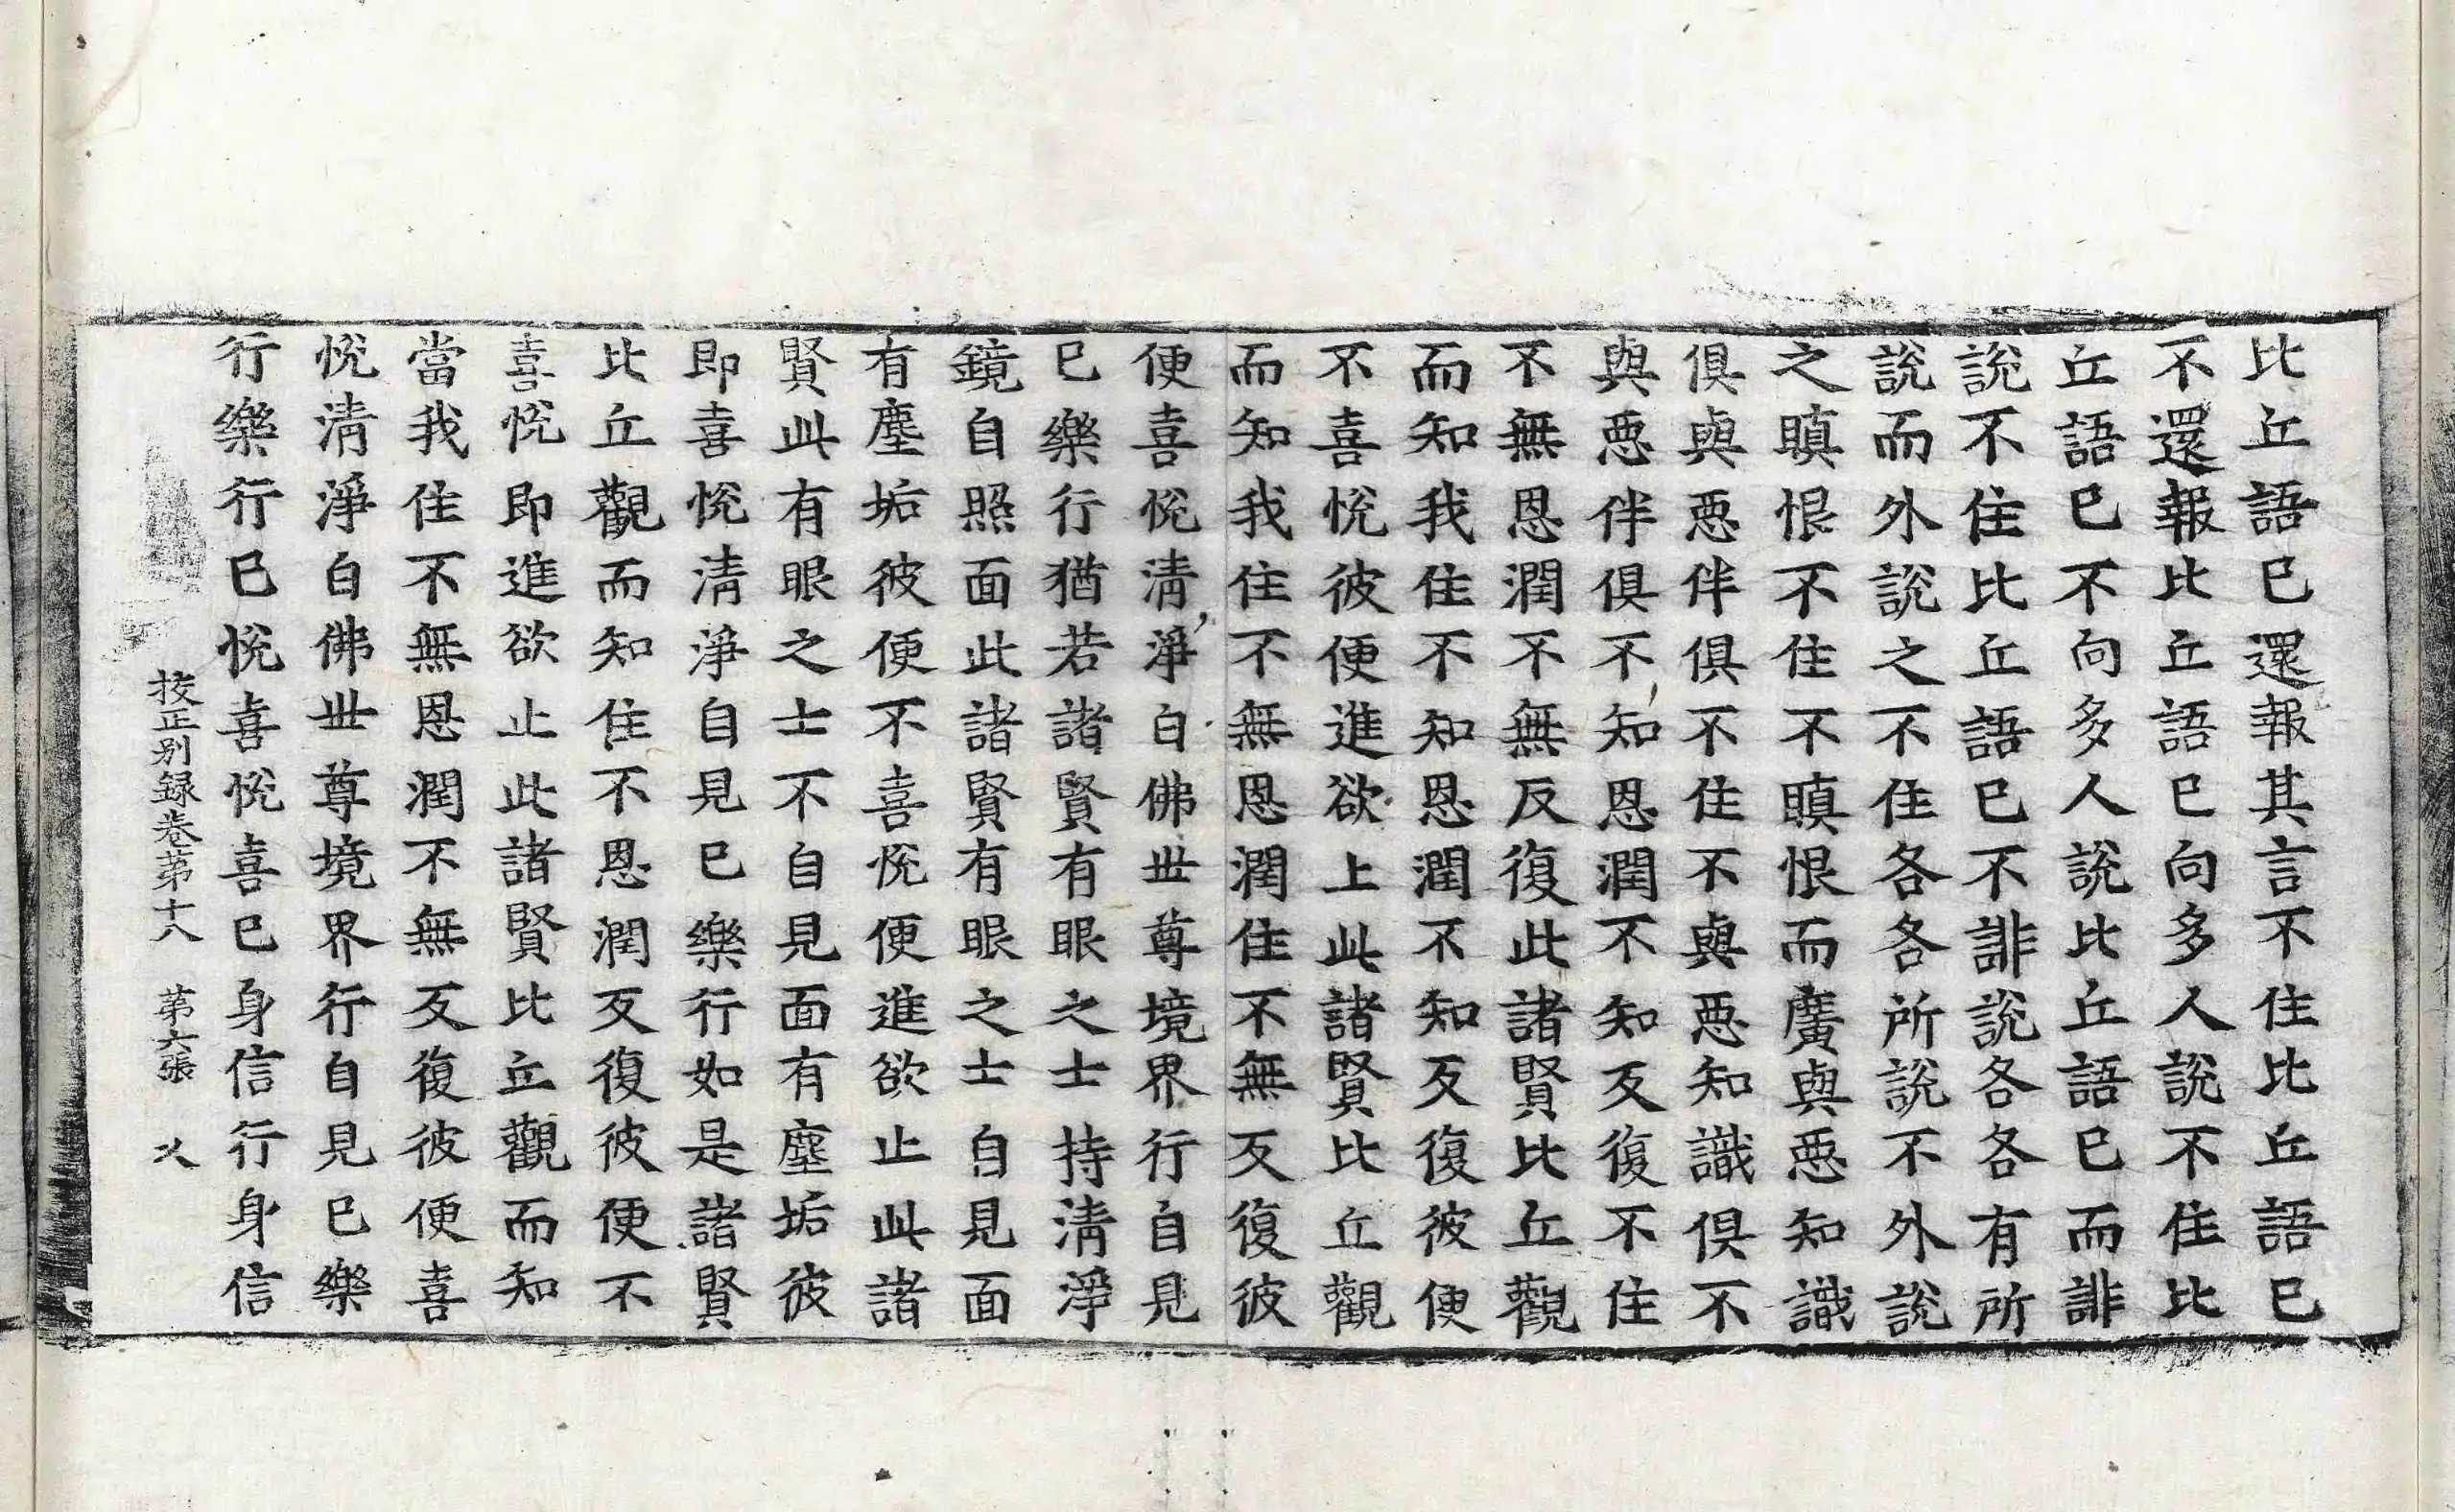 比丘語已還報其言不住比丘語已
不還報比丘語已向多人說不住比
丘語已不向多人說比丘語已而誹
說不住比丘語已不誹說各各有所
說而外說之不住各各所說不外說
之瞋恨不住不瞋恨而廣與惡知識
俱與惡伴俱不住不與惡知識俱不
與惡伴俱不知恩潤不知反復不住
不無恩潤不無反復此諸賢比丘觀
而知我住不知恩潤不知反復彼便
不喜悅彼便進欲上此諸賢比丘觀
而知我住不無恩潤住不無反復彼
便喜悅清淨白佛世尊境界行自見
已樂行猶若諸賢有眼之士持清淨
鏡自照面此諸賢有眼之士自見面
有塵垢彼便不喜悅便進欲止此諸
賢此有眼之士不自見面有塵垢彼
即喜悅清淨自見已樂行如是諸賢
比丘觀而知住不恩潤反復彼便不
喜悅即進欲止此諸賢比丘觀而知
當我住不無恩潤不無反復彼便喜
悅清淨白佛世尊境界行自見已樂
行樂行已悅喜悅喜已身信行身信
挍正別録卷第十八 第六張 乂